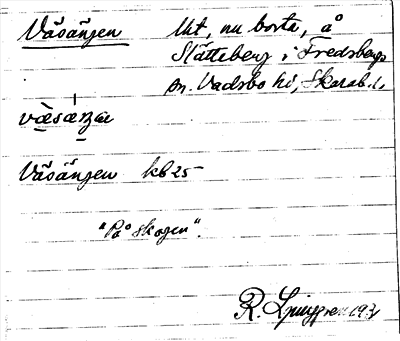 Våsängen Uht, nu borta, å
Slätteberg i Fredsbergs
sn. Vadsbo hd, Skarab. l.
Våsängen kb 25
"På skogen".
R. Ljunggren 1931